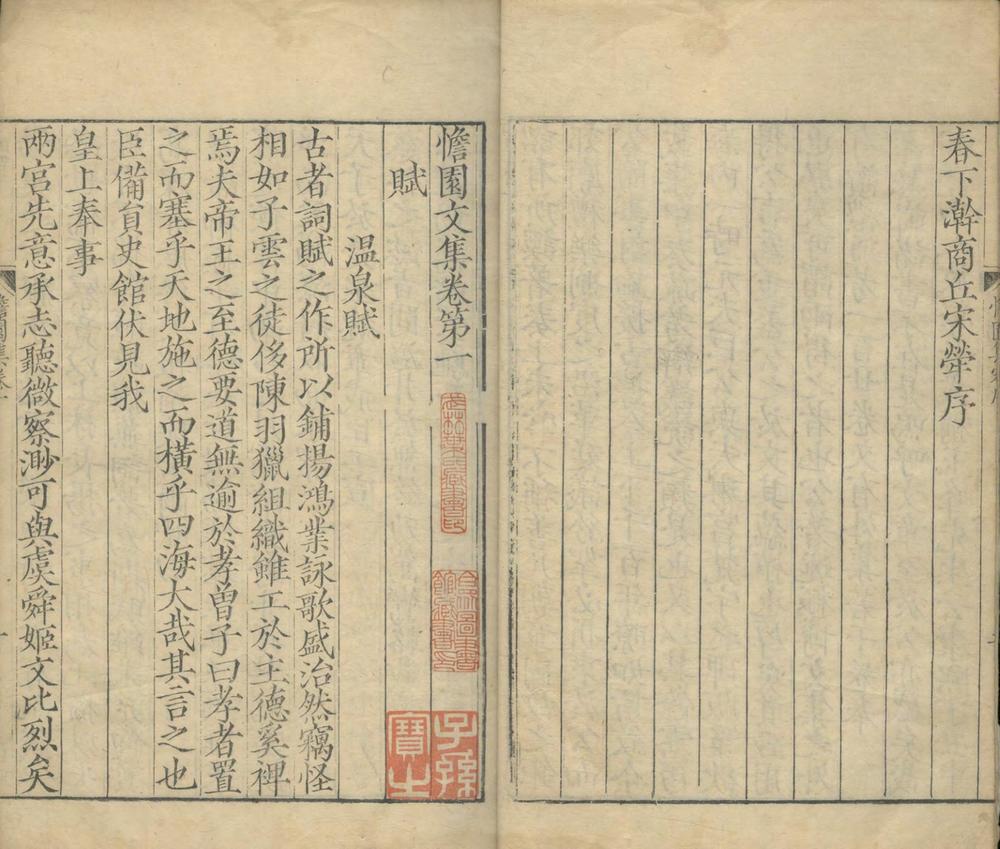 春下澣商丘宋犖序
憺園文集卷第一
賦
溫泉賦
古者詞賦之作所以鋪揚鴻業詠歌盛治然竊怪
相如子雲之徒侈陳羽獵組織雖工於主德奚裨
焉夫帝王之至德要道無逾於孝曾子曰孝者置
之而塞乎天地施之而橫乎四海大哉其言之也
臣備負史館伏見我
皇上奉事
兩宮先意承志聽微察渺可與虞舜姬文比烈矣
子孫
寶之